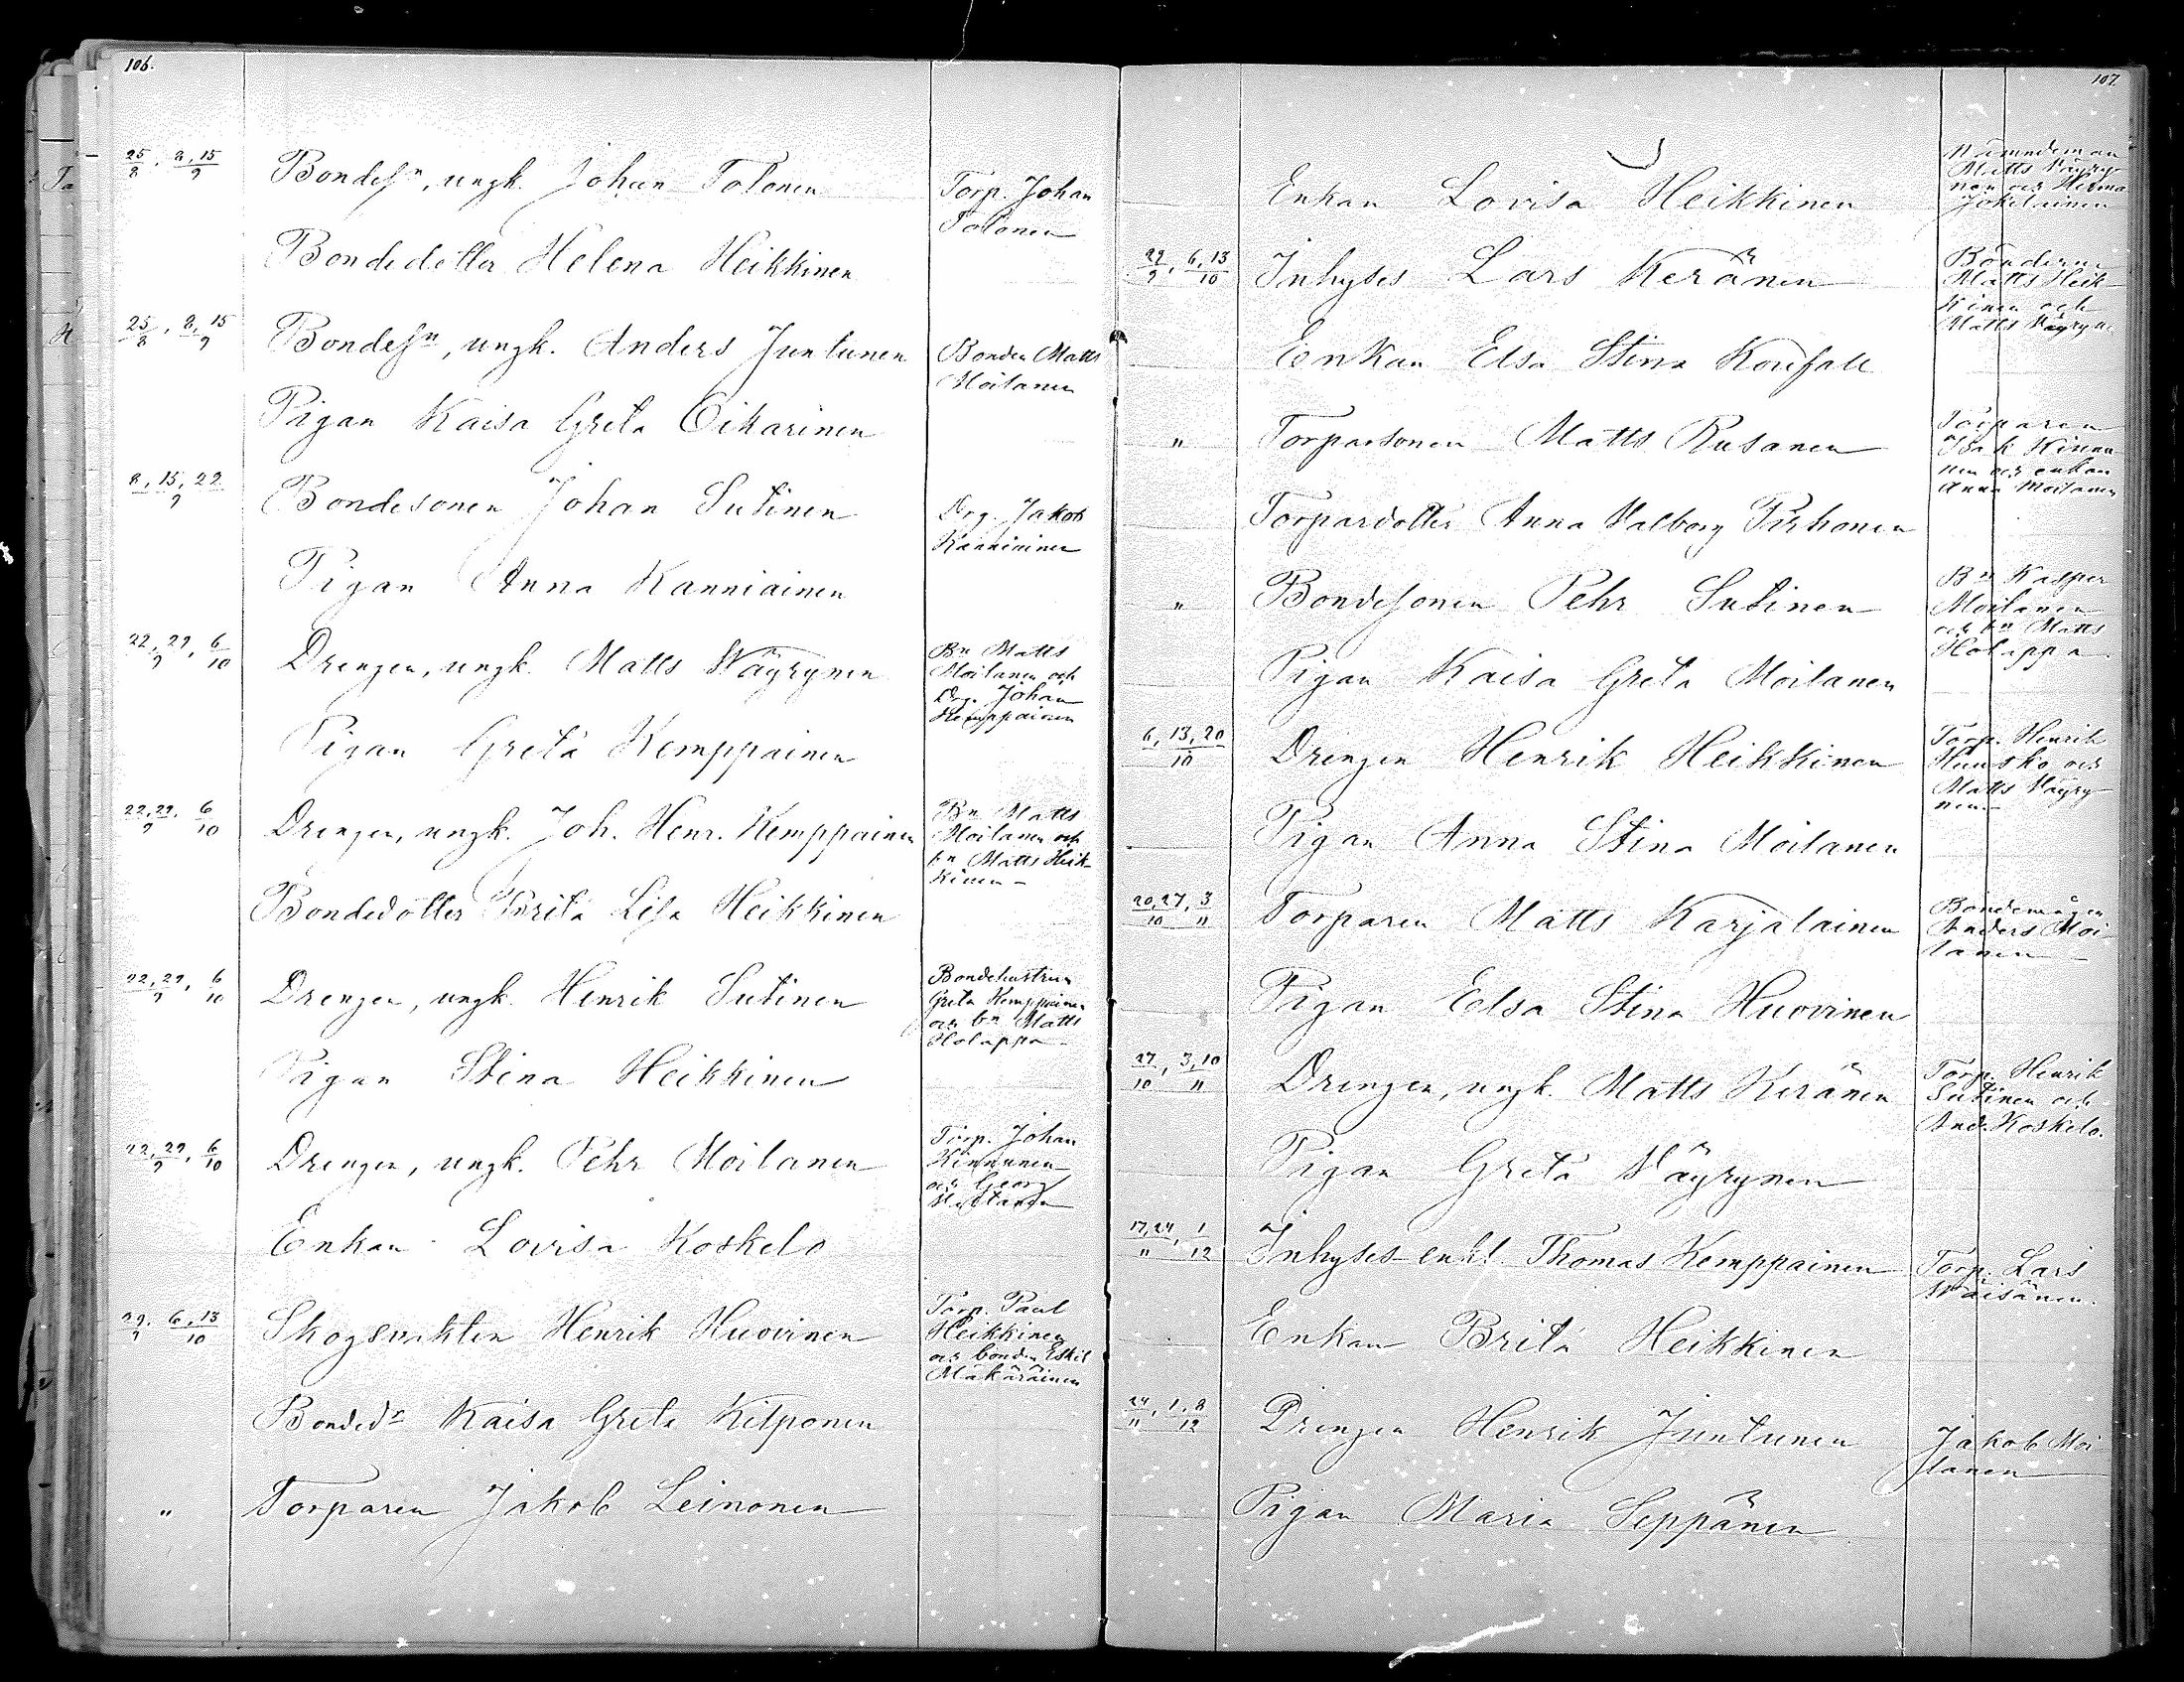 106.
25/8, 8,15/9 Bondesn, ungk. Johan Tolonen
Torp. Johan
Tolonen
Bondedotter Helena Heikkinen
25/8, 8,15/9 Bondesn, ungk. Anders Juntunen
Bonden Matts
Moilanen
Pigan Kaisa Greta Oikarinen
8,15,22/9 Bondesonen Johan Sutinen
Drg. Jakob
Kanniainen
Pigan Anna Kanniainen
22,29/9, 6/10 Drengen, ungk. Matts Wäyrynen
Bn Matts
Moilanen och
Drg. Johan
Kemppainen
Pigan Greta Kemppainen
22,29/9, 6/10 Drengen, ungk. Joh. Henr. Kemppainen
Bn Matts
Moilanen och
bn Matts Heik-
kinen -
Bondedotter Brita Lisa Heikkinen
22,29/9, 6/10 Drengen, ungk. Henrik Sutinen
Bondehustrun
Greta Kemppainen
och bn Matts
Holappa -
Pigan Stina Heikkinen
22,29/9, 6/10 Drengen, ungk. Pehr Moilanen
Torp. Johan
Kinnunen
och Georg
Enkan Lovisa Koskelo
29/9, 6,13/10 Skogsvakten Henrik Huovinen
Torp. Paul
Heikkinen
och bonden Eskil
Mäkäräinen
Bondedr Kaisa Greta Kilponen
" Torparen Jakob Leinonen
107.
Enkan Lovisa Heikkinen
Nämndeman
Matts Väyry-
nen och Herman
Jokelainen
29/9, 6,13/10 Inhyses Lars Keränen
Bönderne
Matts Heik-
kinen och
Matts Väyryn.
Enkan Elsa Stina Korifall
" Torparsonen Matts Rusanen
Torparen
Isak Kinnu-
nen och enkan
Anna Moilanen
Torpardotter Anna Valborg Pirhonen
" Bondesonen Pehr Sutinen
Bn Kasper
Moilanen
och bn Matts
Holappa
Pigan Kaisa Greta Moilanen
6,13,20/10 Drengen Henrik Heikkinen
Torp. Henrik
Huusko och
Matts Väyry-
nen -
Pigan Anna Stina Moilanen
20,27/10, 3/11 Torparen Matts Karjalainen
Bondemågen
Anders Moi-
lanen -
Pigan Elsa Stina Huovinen
27/10, 3,10/11 Drengen, ungk. Matts Keränen
Torp. Henrik
Sutinen och
And. Koskelo.
Pigan Greta Väyrynen
17,24/11, 1/12 Inhyses enkl. Thomas Kemppainen
Torp. Lars
Väisänen.
Enkan Brita Heikkinen
24/11, 1,8/12 Drengen Henrik Juntunen
Jakob Moi-
lanen
Pigan Maria Seppänen